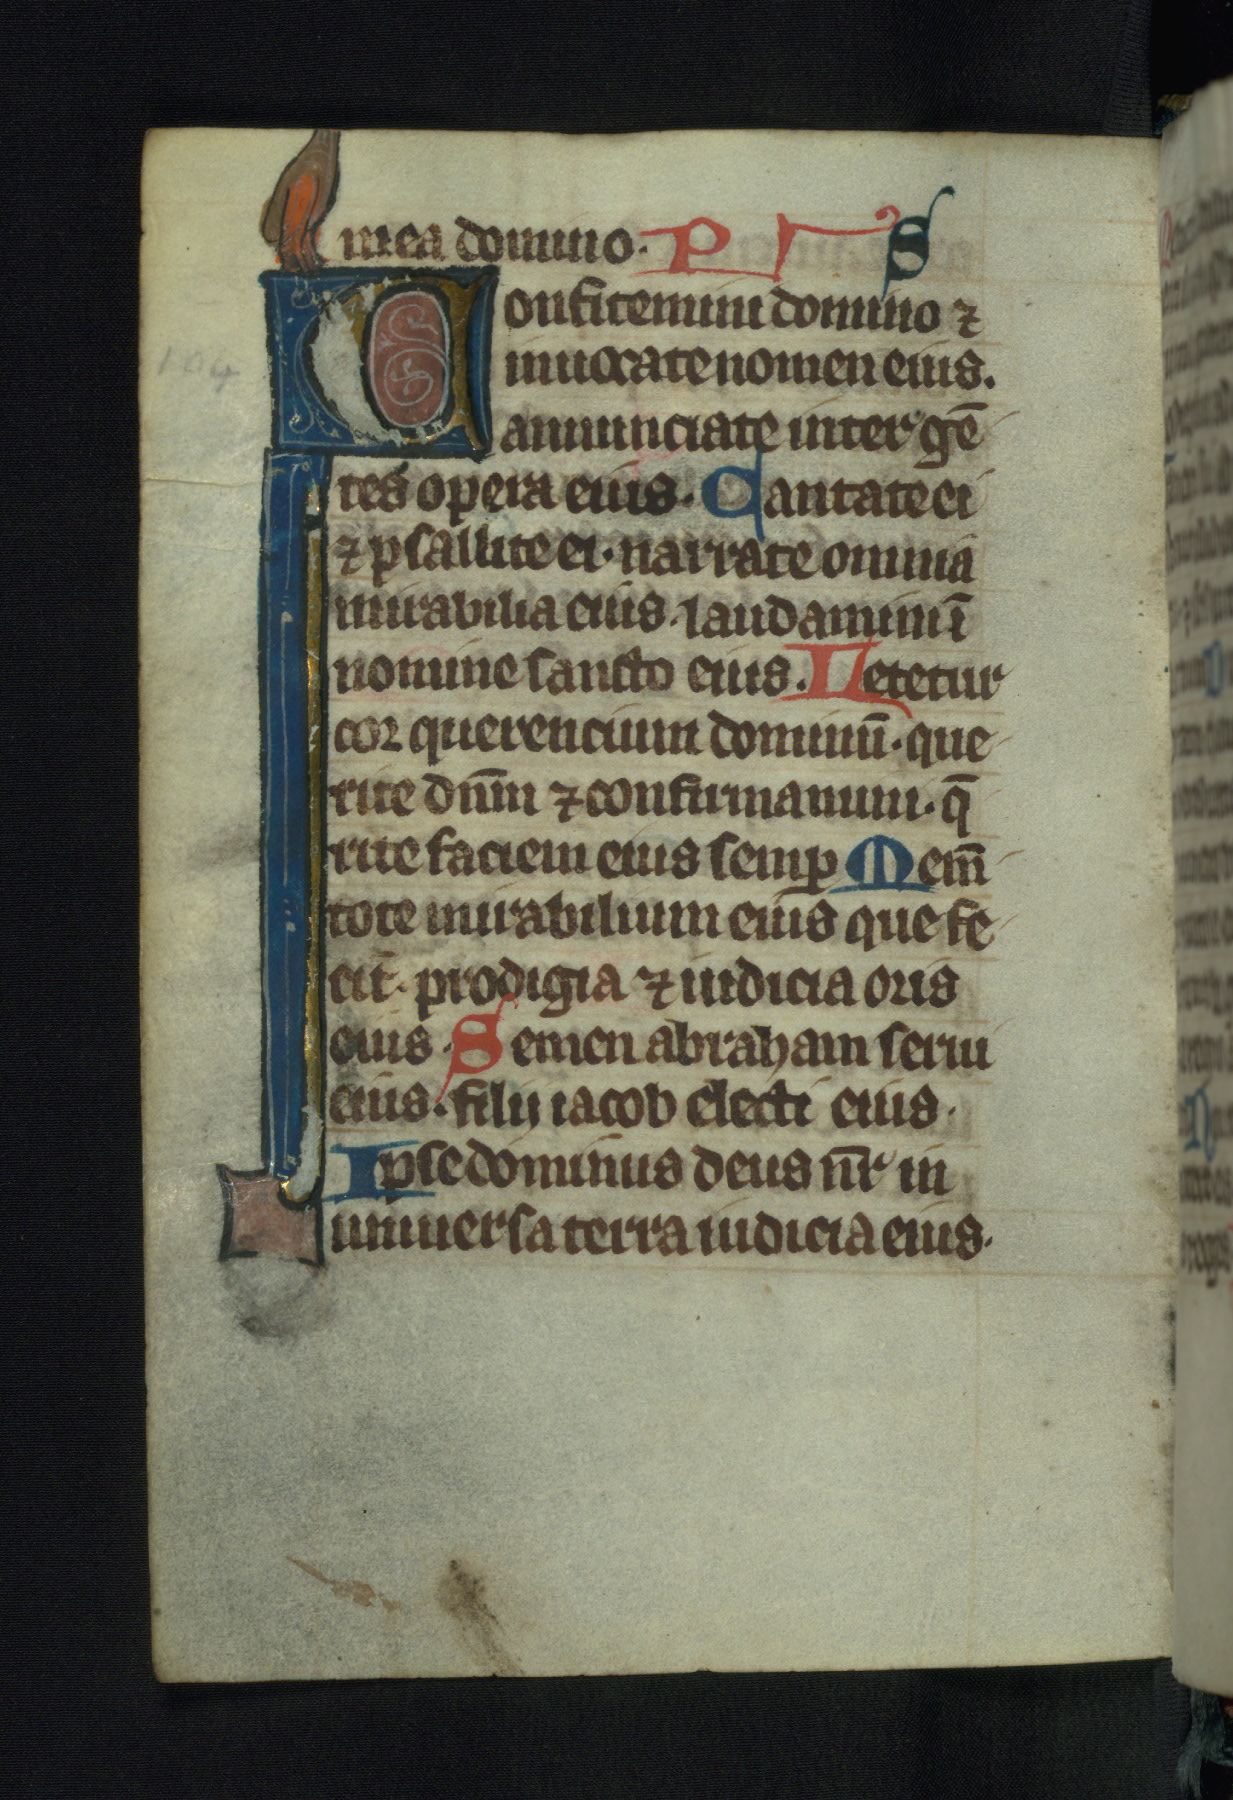 mea domino. P S
Confitemini domino ⁊
inuocate nomen eius.
annunciate inter gē
tes opera eius. Cantate ei
⁊ psallite ei. narrate omnia
mirabilia eius. laudamini ī
nomine sancto eius. Letetur
cor querencium dominū. que
rite dn̄m ⁊ confirmamini. q̄
rite faciem eius semꝑ Mem̄
tote mirabilium eius que fe
cit. prodigia ⁊ iudicia oris
eius. Semen abraham serui
eius. filij iacob electi eius.
Ipse dominus deus nr̄ in
uniuersa terra iudicia eius.